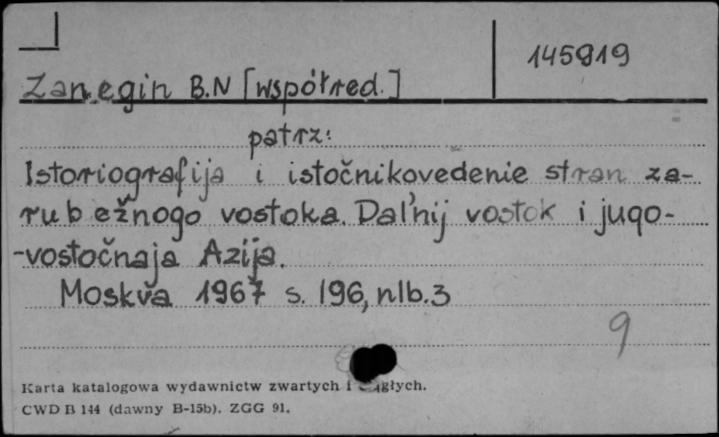 145919
Zanegin B.N [współred.]
patrz:
Istoriografija i istočnikovedenie stran za-
rubežnogo vostoka. Dal'nij vostok i jugo-
-vostočnaja Azija.
Moskva 1967 s. 196, nlb. 3
9
Karta katalogowa wydawnictw zwartych i ciągłych.
CWD B 144 (dawny B-15b). ZGG 91.